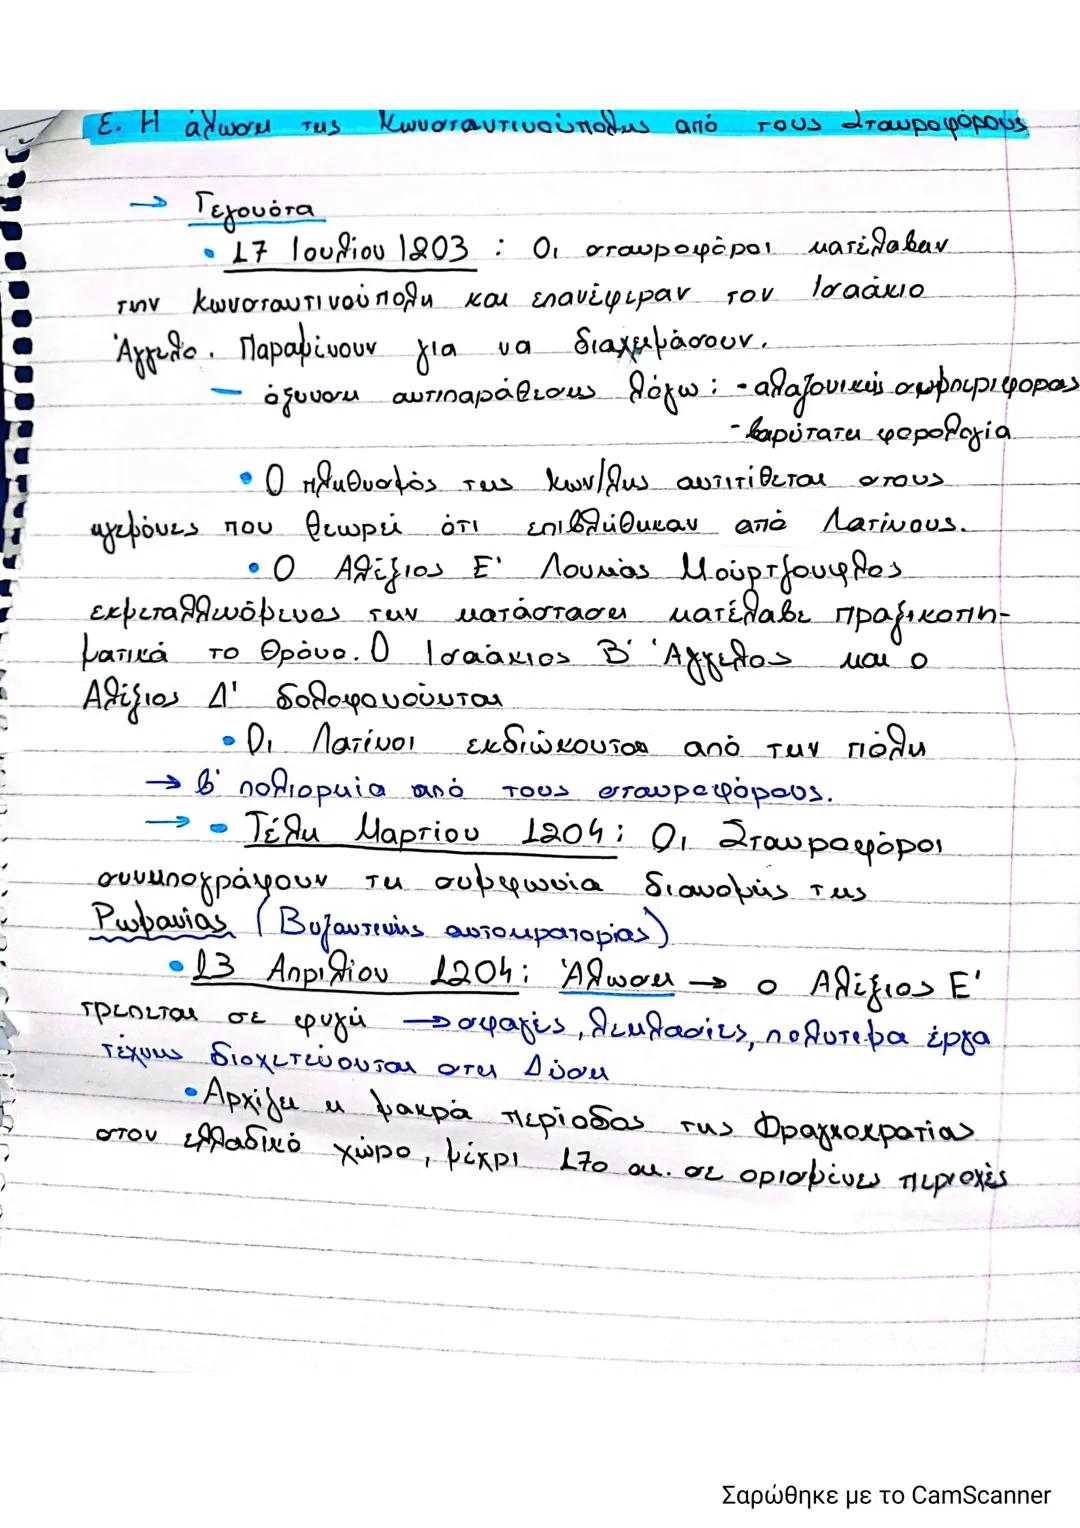 ε. Η άλωση της Κωνσταντινούπολης από τους Σταυροφόρους
→ Γεγονότα
• 17 Ιουλίου 1203 : Οι σταυροφόροι κατέλαβαν
την Κωνσταντινούπολη και επανέφεραν τον Ισαάκιο
Άγγελο. Παραμένουν για να διαχειμάσουν.
– όξυνση αντιπαράθεσης λόγω : - αλαζονικής συμπεριφοράς
- βαρύτατη φορολογία
• Ο πληθυσμός της Κων/λης αντιτίθεται στους
ηγεμόνες που θεωρεί ότι επιβλήθηκαν από Λατίνους.
• Ο Αλέξιος Ε' Δούκας Μούρτζουφλος
εκμεταλλευόμενος την κατάσταση κατέλαβε πραξικοπη-
ματικά το θρόνο. Ο Ισαάκιος Β' Άγγελος και ο
Αλέξιος Δ' δολοφονούνται
• Οι Λατίνοι εκδιώκονται από την πόλη
→ β' πολιορκία από τους σταυροφόρους.
→ • Τέλη Μαρτίου 1204 : Οι Σταυροφόροι
συνυπογράφουν τη συμφωνία διανομής της
Ρωμανίας (Βυζαντινής αυτοκρατορίας)
• 13 Απριλίου 1204 : Άλωση → ο Αλέξιος Ε'
τρέπεται σε φυγή → σφαγές, λεηλασίες, πολύτιμα έργα
τέχνης διοχετεύονται στη Δύση
• Αρχίζει η μακρά περίοδος της Φραγκοκρατίας
στον ελλαδικό χώρο, μέχρι 17ο αι. σε ορισμένες περιοχές
Σαρώθηκε με το CamScanner